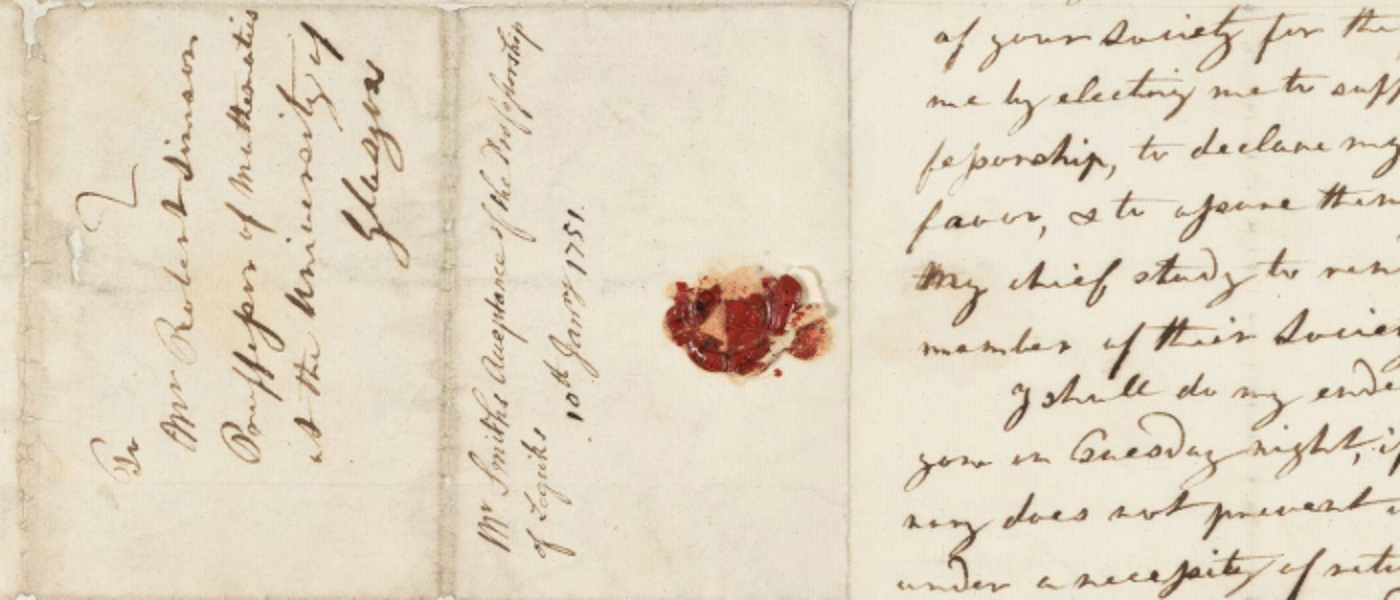 To
Mr Robert Simson
Prouffessor of Mathematics
at the University of
Glasgow
Mr Smiths Acceptance of the Professorship
of Logicks
10th Janry 1751.
of your Society for the
me by electing me to
fessorship, to declare my
favor, & to assure them
my chief study to
member of their
I shall do my
you on Tuesday night,
does not prevent
under a necessity of